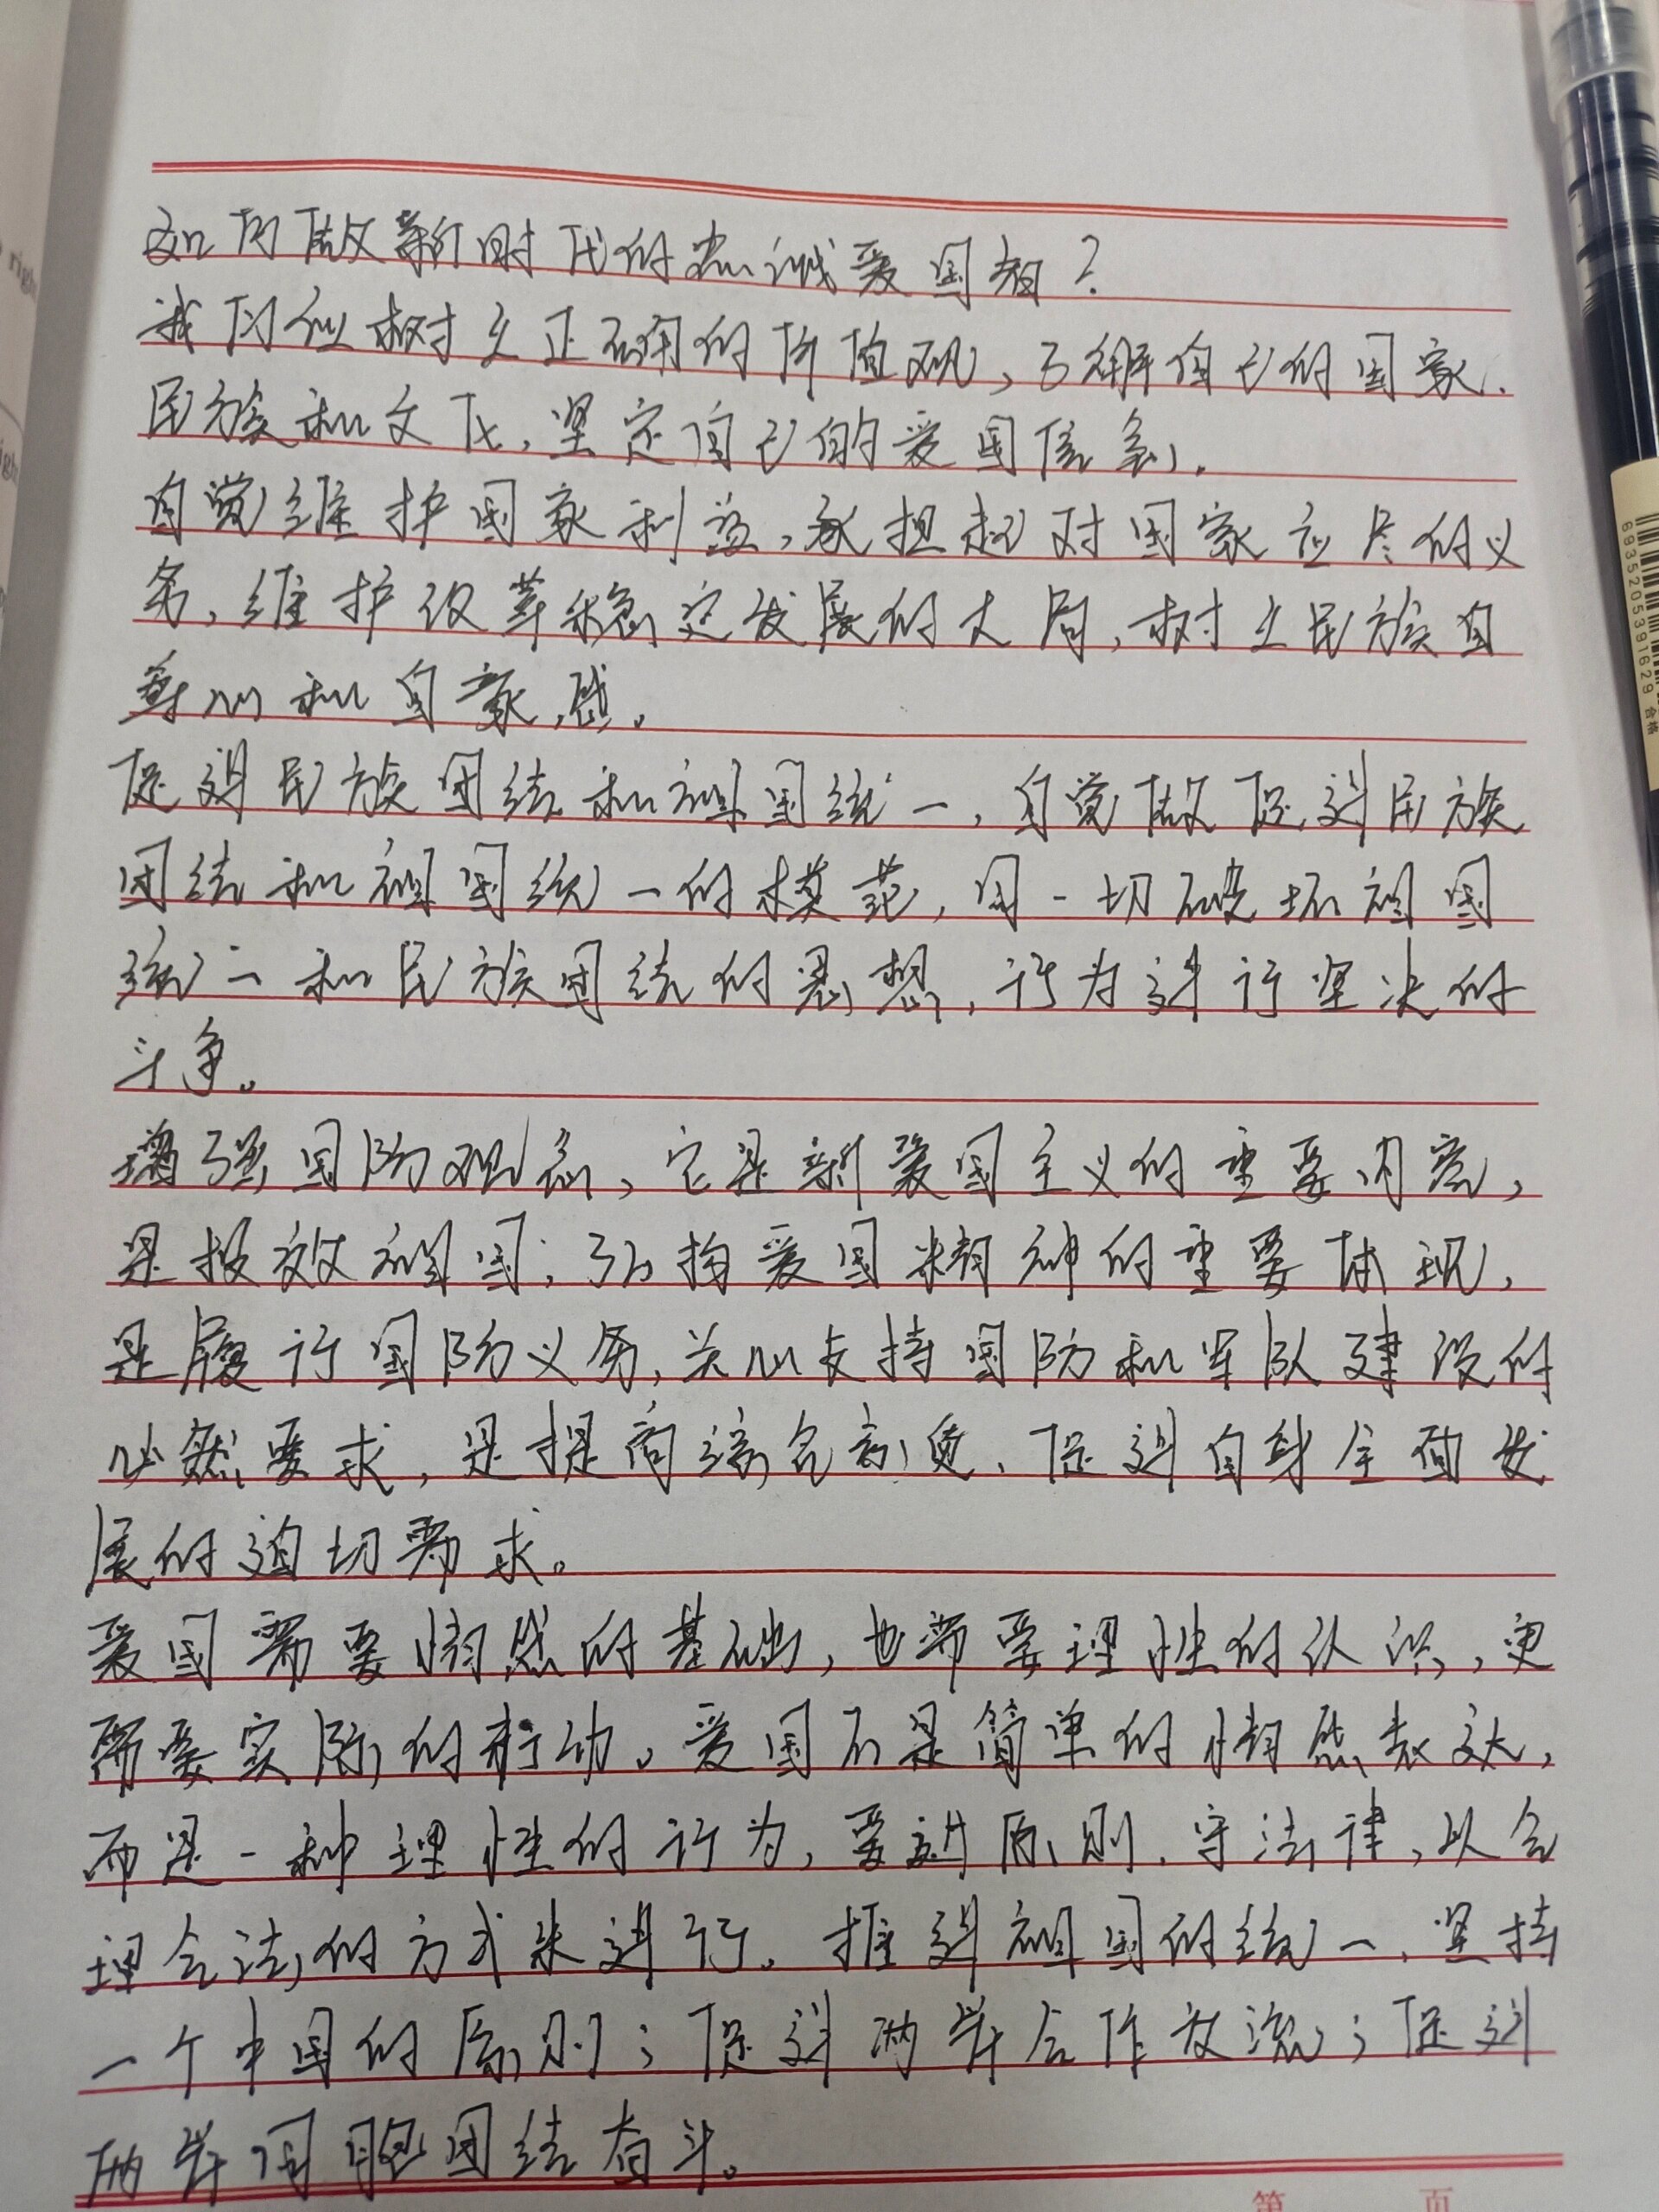 如何做新时代的忠诚爱国者？
我们应树立正确的价值观，了解自己的国家、
民族和文化，坚定自己的爱国信念。
自觉维护国家利益，承担起对国家应尽的义
务，维护改革稳定发展的大局，树立民族自
尊心和自豪感。
促进民族团结和祖国统一，自觉做促进民族
团结和祖国统一的模范，同一切破坏祖国
统一和民族团结的思想，行为进行坚决的
斗争。
增强国防观念，它是新爱国主义的重要内容，
是报效祖国，弘扬爱国精神的重要体现，
是履行国防义务，关心支持国防和军队建设的
必然要求，是提高综合素质、促进自身全面发
展的迫切需求。
爱国需要情感的基础，也需要理性的认识，更
需要实际的行动。爱国不是简单的情感表达，
而是一种理性的行为，要讲原则、守法律，以合
理合法的方式来进行。推进祖国的统一、坚持
一个中国的原则；促进两岸合作交流；促进
两岸同胞团结奋斗。
第 页
righ
igh
6935205391629
合格